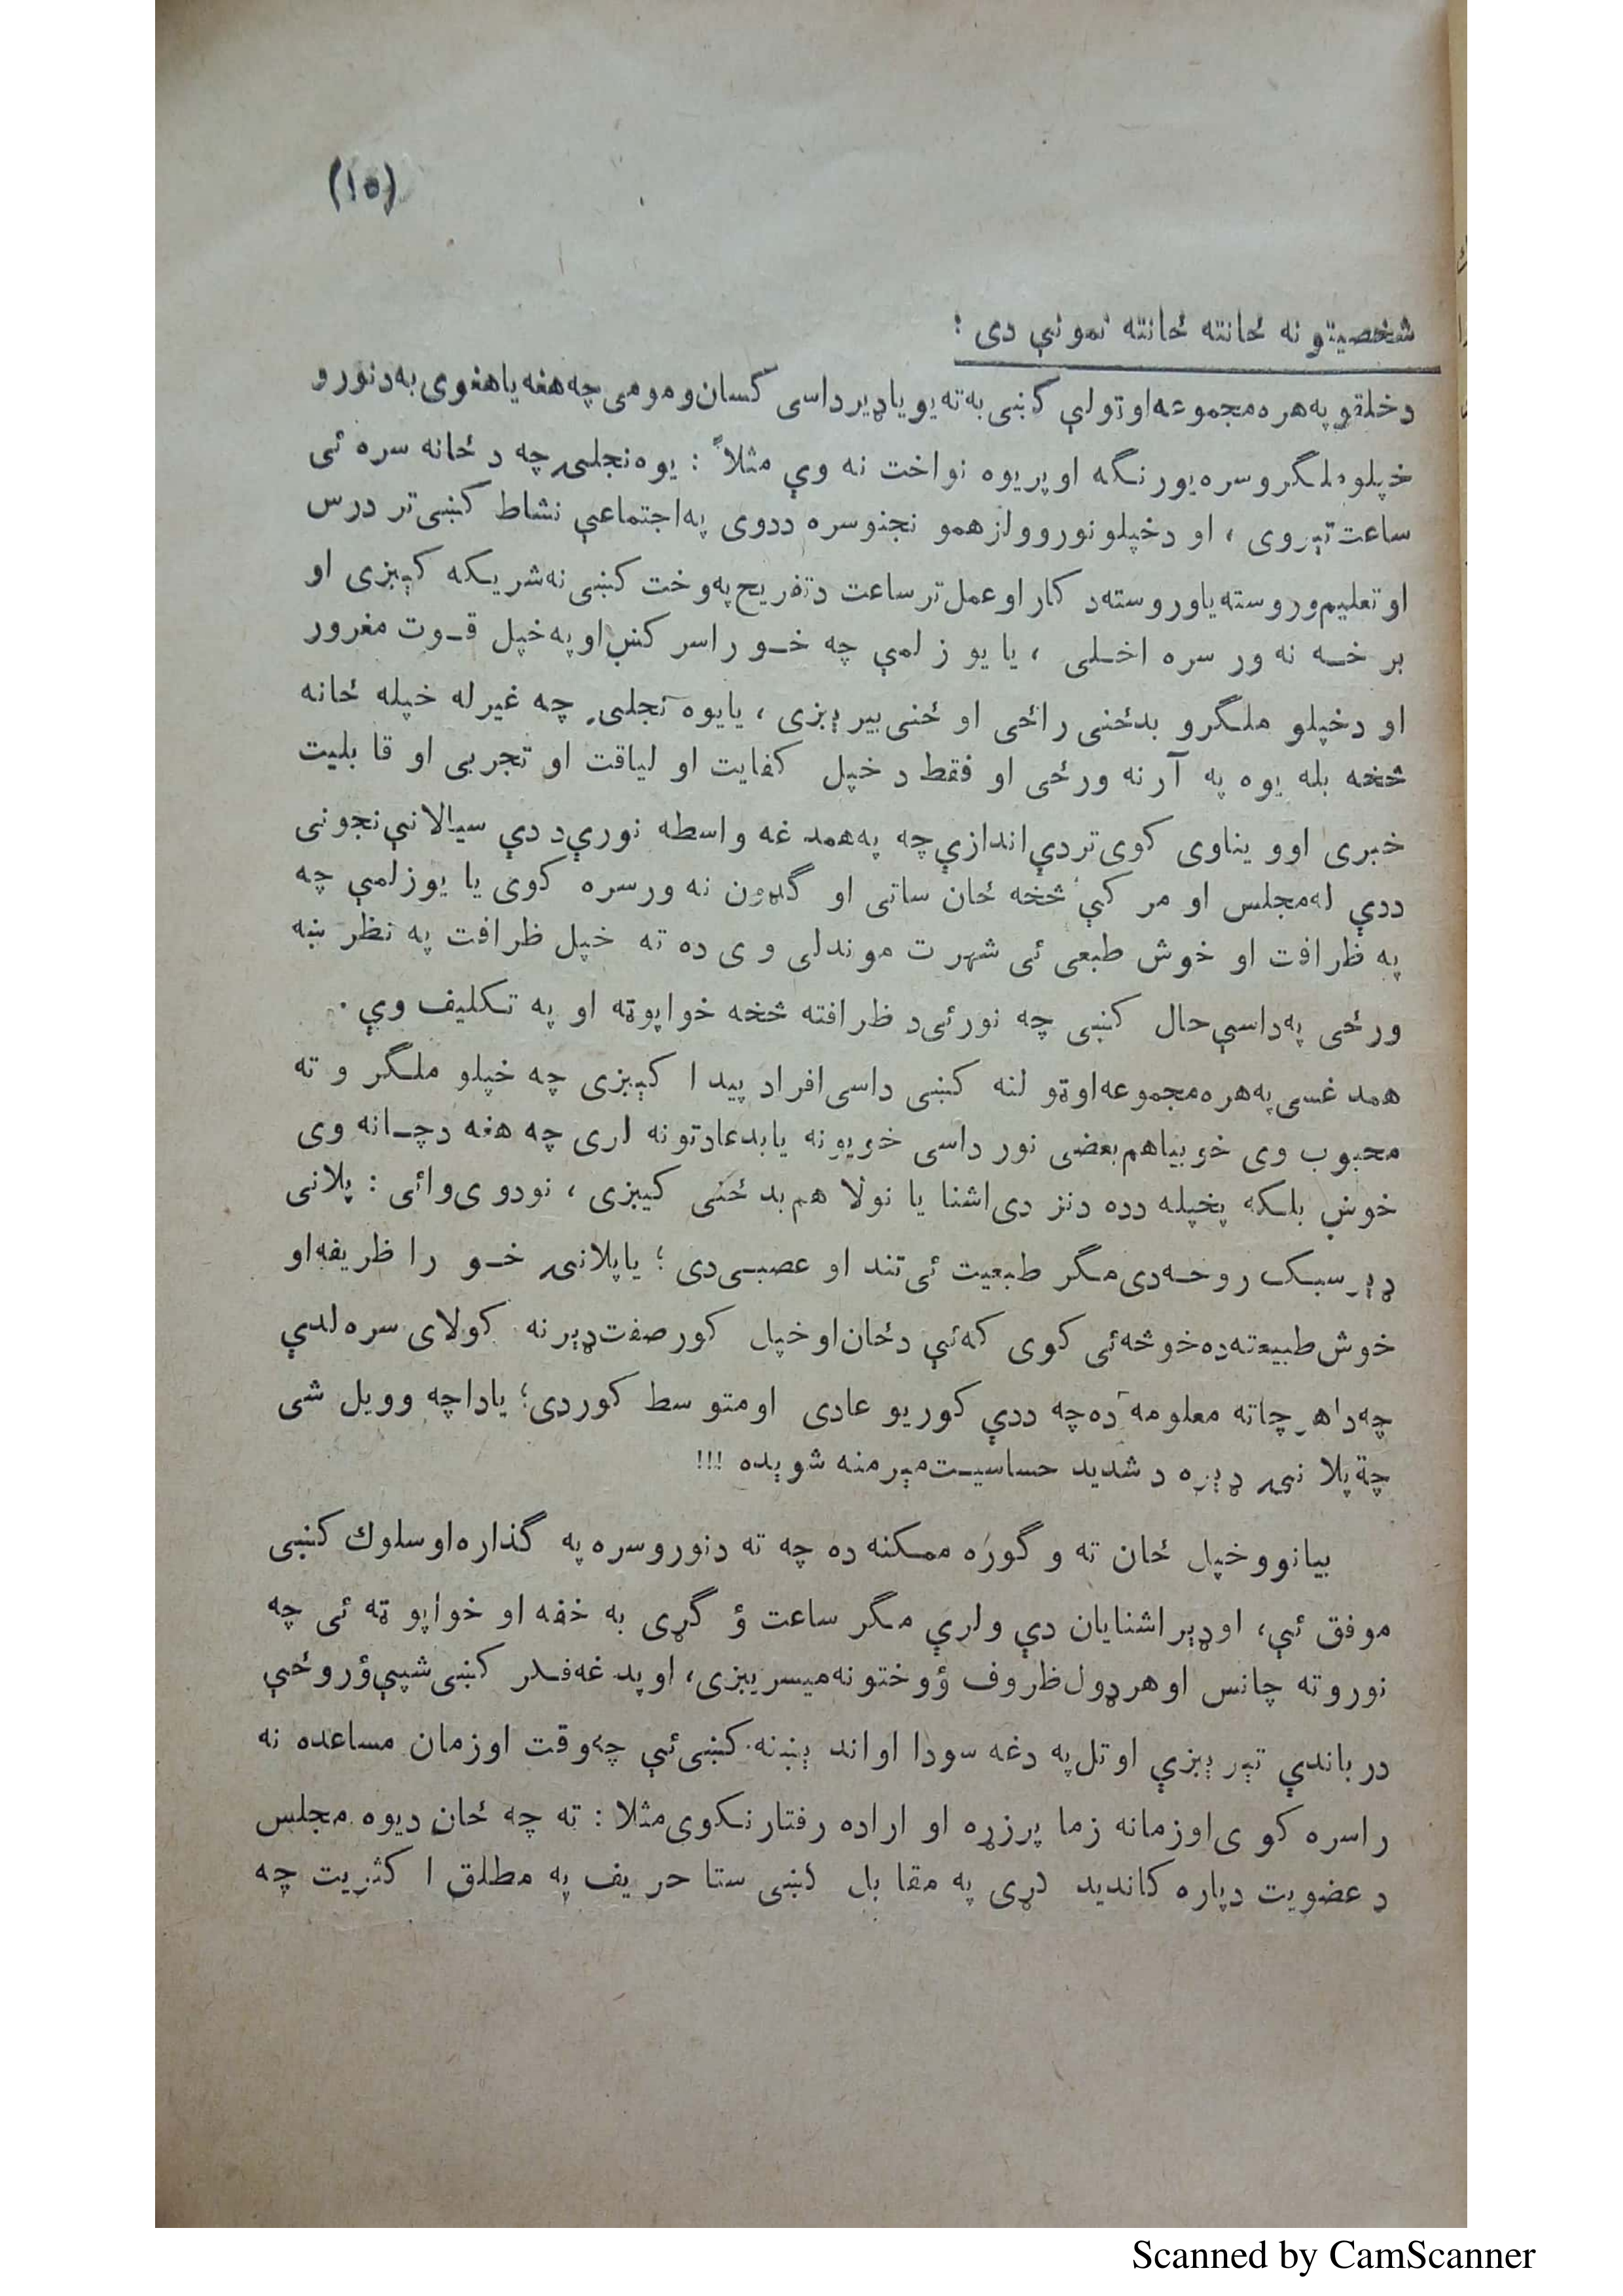 (۱۵)
شخصیتو نه ځانته ځانته نمونې دی :
دخلقو په هره مجموعه او تولې کښی به ته یو یا ډیر داسی کسان و مومی چه هغه یا هغوی به د نورو
خپلو ملگرو سره یو رنگه او پر یوه نواخت نه وې مثلاً : یوه نجلۍ چه د ځانه سره ئی
ساعت تېروی ، او دخپلو نورو ولزهمو نجنو سره ددوی په اجتماعې نشاط کښی تر درس
او تعلیم وروسته یا وروسته د کار او عمل تر ساعت د تفریح په وخت کښی نه شریکه کېږی او
برخه نه ور سره اخلی ، یا یو زلمې چه خو را سر کښ او په خپل قوت مغرور
او دخپلو ملگرو بدځنی راځی او ځنی بیرېږی ، یا یوه نجلۍ چه غیر له خپله ځانه
څخه بله یوه په آر نه ورځی او فقط د خپل کفایت او لیاقت او تجربی او قابلیت
خبری او ویناوی کوی تر دې اندازې چه په همد غه واسطه نورې د دې سیالانې نجونی
ددې له مجلس او مر کې څخه ځان ساتی او گډون نه ورسره کوی یا یو زلمې چه
په ظرافت او خوش طبعی ئی شهرت موندلی وی ده ته خپل ظرافت په نظر ښه
ورځی په داسې حال کښی چه نورئی د ظرافته څخه خواپوټه او په تکلیف وې .
همد غسی په هره مجموعه او ټولنه کښی داسی افراد پیدا کېږی چه خپلو ملگرو ته
محبوب وی خو بیا هم بعضی نور داسی خویونه یا بدعادتونه لری چه هغه دچانه وی
خوښ بلکه پخپله دده دنز دی اشنا یا نولا هم بد ځنی کیږی ، نو دوی وائی : پلانی
ډېر سبک روحه دی مگر طبعیت ئی تند او عصبی دی ؛ یا پلانۍ خو را ظریفه او
خوش طبیعته ده خو څه ئی کوی که ئې دځان او خپل کور صفت ډېر نه کولای سره لدې
چه دا هر چاته معلومه ده چه ددې کور یو عادی او متوسط کور دی؛ یا دا چه وویل شی
چه پلانۍ ډېره د شدید حساسیت مېرمنه شوېده !!!
بیا نو و خپل ځان ته و گوره ممکنه ده چه ته دنورو سره په گذاره او سلوك کښی
موفق ئې، او ډېر اشنایان دې ولرې مگر ساعت ؤ گړی به خفه او خواپو ټه ئی چه
نورو ته چانس او هر ډول ظروف ؤ وختونه میسر یېږی، او پد غه فکر کښی شپې ؤ روځې
در باندې تېر ېږې او تل په دغه سودا او اند ېښنه کښی ئې چه وقت او زمان مساعده نه
را سره کوی او زمانه زما پر زړه او اراده رفتار نکوی مثلا : ته چه ځان دیوه مجلس
د عضویت دپاره کاندید کړی په مقابل کښی ستا حریف په مطلق اکثریت چه
Scanned by CamScanner